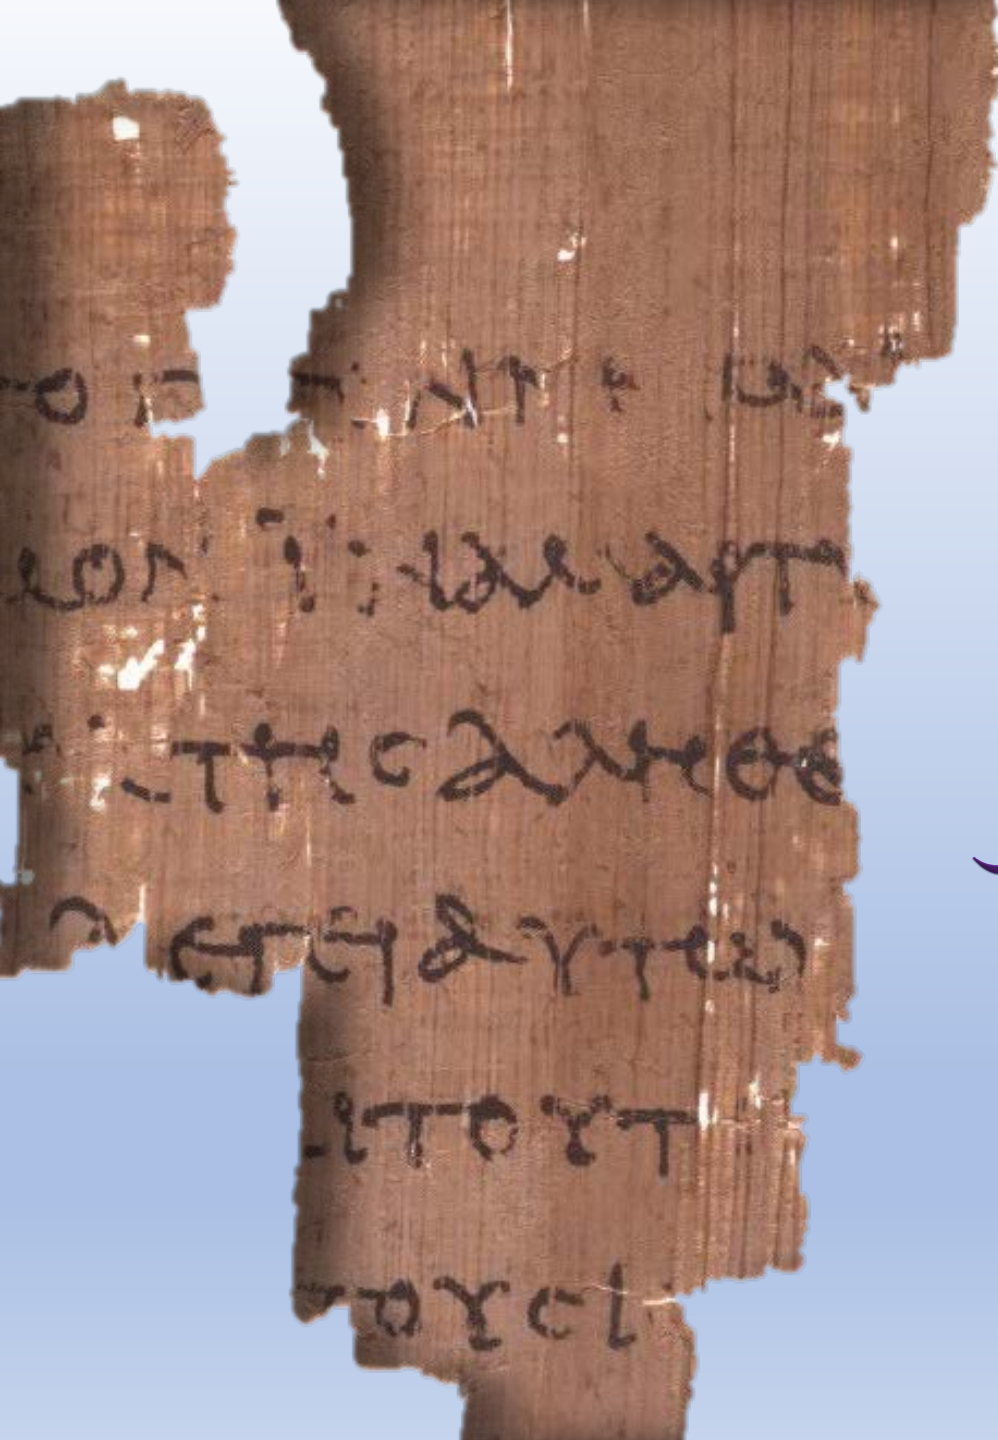 ΤΟ Γ ΓΕΝΝΗΜΑΙ
ΜΟΝ ΙΝΑ ΜΑΡΤ
Κ ΤΗϹΑΛΗΘΕ
ΛΕΓΕΙΑΥΤⲰ
ΑΙΤΟΥΤ
ΤΟΥϹΙ